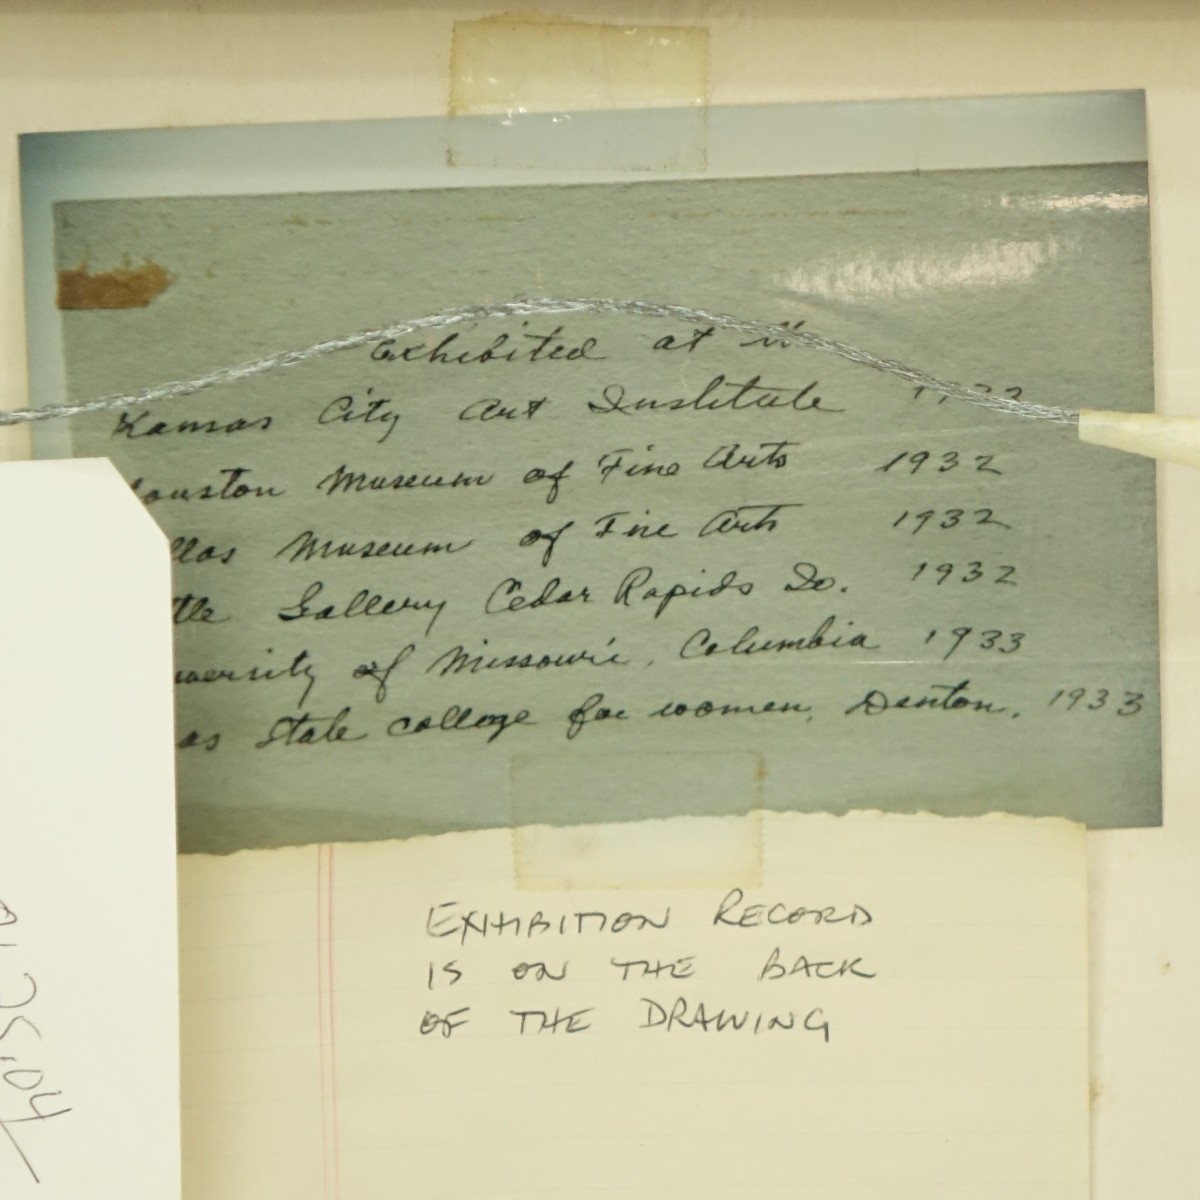 Exhibited at
Kansas City Art Institute
Houston Museum of Fine Arts 1932
llas Museum of Fine Arts 1932
ttle Gallery Cedar Rapids Io. 1932
iversity of Missouri, Columbia 1933
as State college for women, Denton. 1933
EXHIBITION RECORD
IS ON THE BACK
OF THE DRAWING